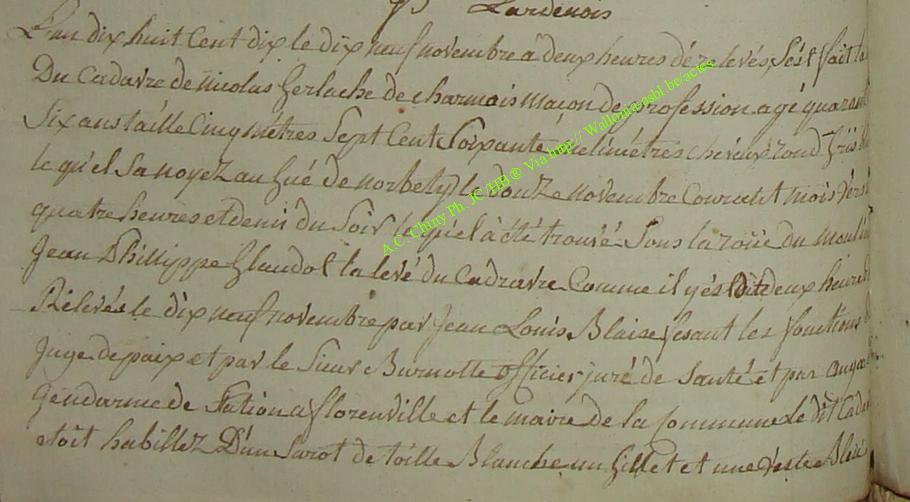 Lardenois
L'an dix huit Cent dix le dix neuf novembre à deux heures dé relevés, s'ést fait la
Du Cadavre de nicolas Gerlache de charmois maçon de profession agé quarant
Six ans taille Cinq métres Sept Cent Soixante milimétres cheveux rond Gris
le qu'el sa noyez au Gué de norbety le douze novembre Courant mois vers
quatre heures et demi du Soir le qu'el à été trouvé Sous la roüe du moulin
Jean Phillippe Glaudot la levé du Cadravre Comme il y ést Dit deux heures
Rélevés le dix neuf novembre par Jean Louis Blaise fesant les fonctions
juge de paix et par le Sieur Burnotte officier juré de Santé et par
Gendarme de Station a florenville et le maire de la Commune le dit Cada
étoit habillez D'un Sarot de toille Blanche un Gillet et une véste Bleu
A.C. Chiny Ph. JC HB ® Via http:// Wallonia asbl.be/actes